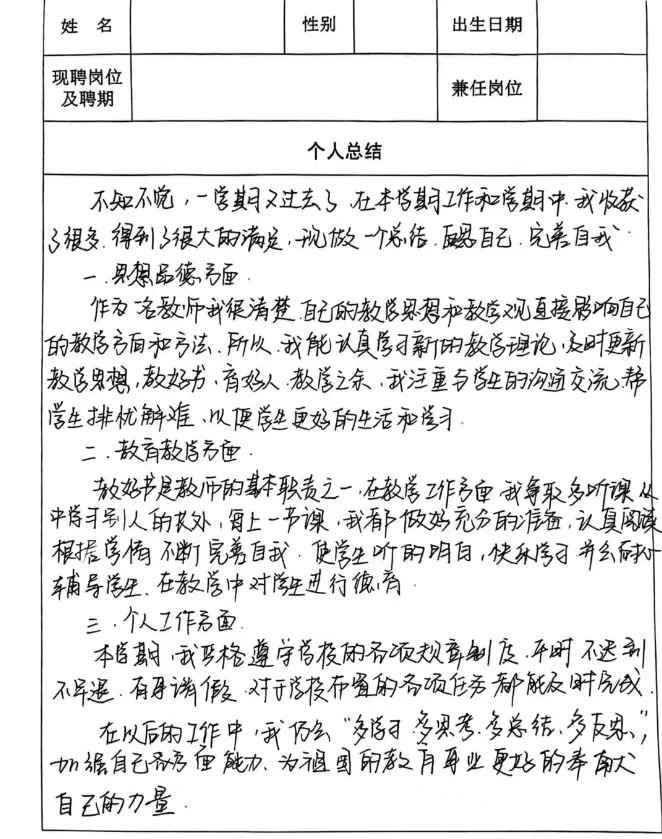 姓 名 性别 出生日期
现聘岗位及聘期 兼任岗位
个人总结
不知不觉，一学期又过去了，在本学期工作和学期中，我收获
了很多，得到了很大的满足，现做一个总结，反思自己，完善自我．
一．思想品德方面．
作为一名教师我很清楚，自己的教学思想和教学观直接影响自己
的教学方面和方法．所以，我能认真学习新的教学理论，及时更新
教学思想，教好书，育好人．教学之余，我注重与学生的沟通交流，帮
学生排忧解难，以便学生更好的生活和学习．
二．教育教学方面．
教好书是教师的基本职责之一，在教学工作方面，我争取多听课，从
中学习别人的长处，每上一节课，我都做好充分的准备，认真阅读
根据学情不断完善自我．使学生听的明白，快乐学习，并会耐心
辅导学生．在教学中对学生进行德育．
三．个人工作方面．
本学期，我严格遵守学校的各项规章制度，平时不迟到
不早退．有事请假．对于学校布置的各项任务都能及时完成．
在以后的工作中，我仍会“多学习．多思考．多总结．多反思”，
加强自己各方面能力，为祖国的教育事业更好的奉献
自己的力量．